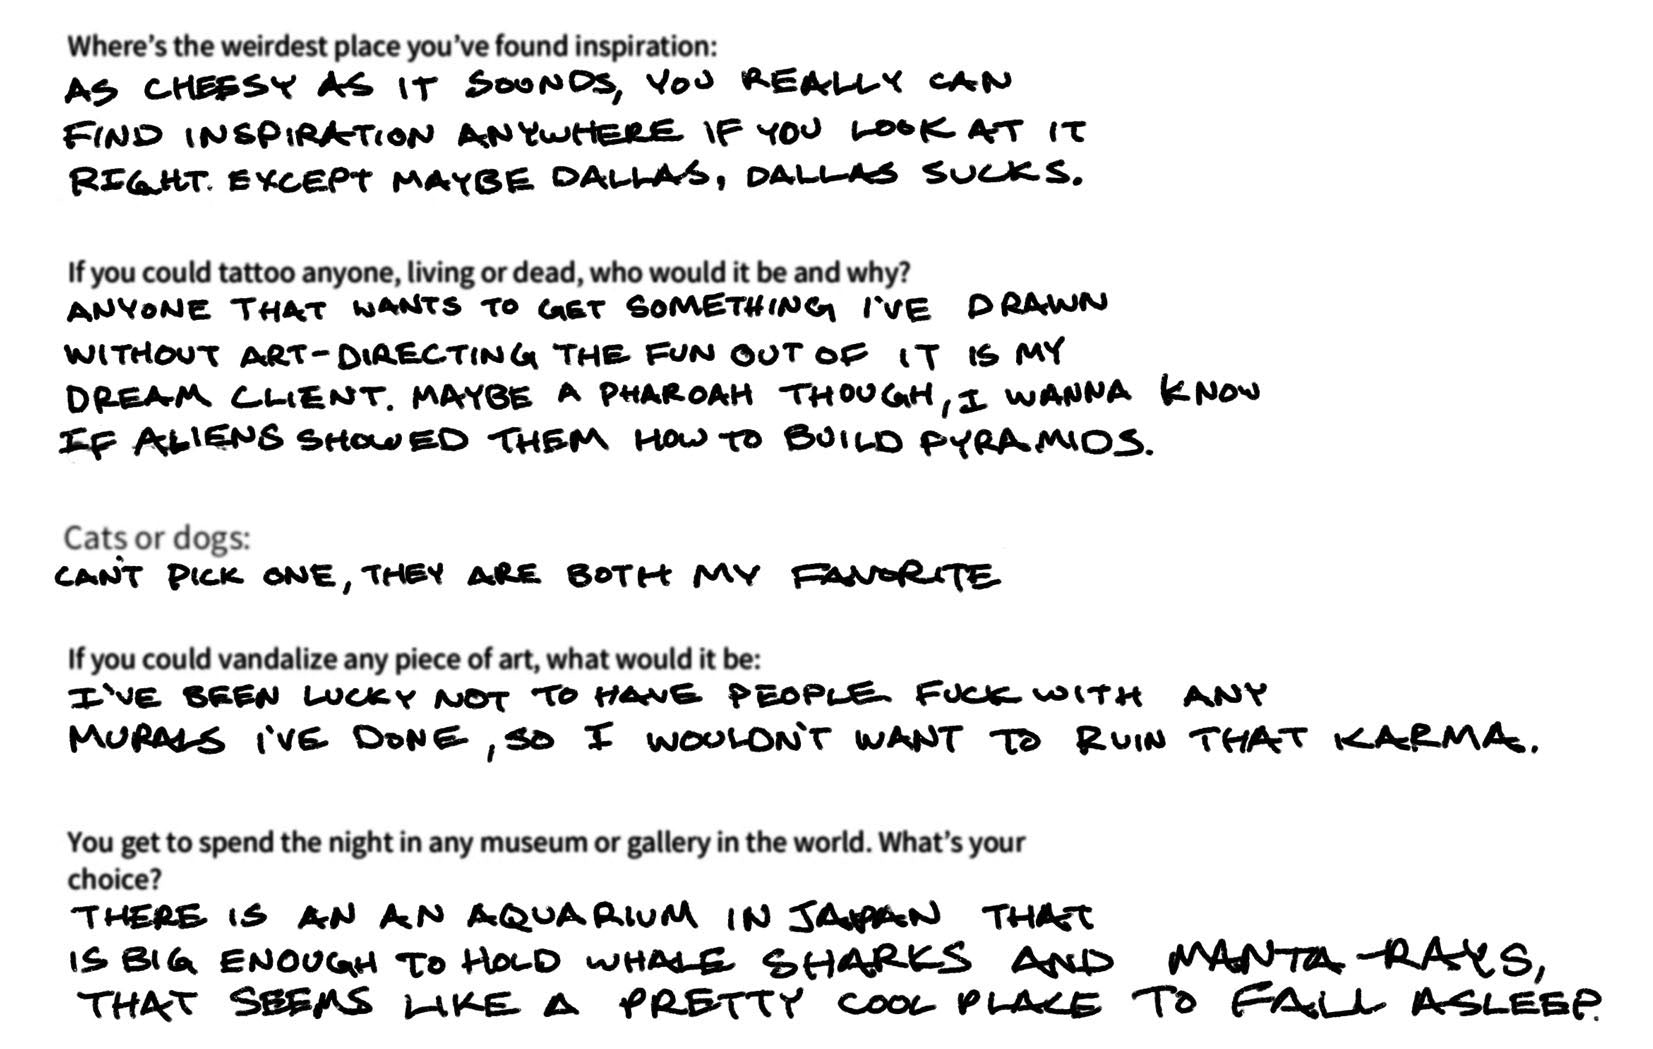 Where's the weirdest place you've found inspiration:
AS CHEESY AS IT SOUNDS, YOU REALLY CAN
FIND INSPIRATION ANYWHERE IF YOU LOOK AT IT
RIGHT. EXCEPT MAYBE DALLAS, DALLAS SUCKS.
If you could tattoo anyone, living or dead, who would it be and why?
ANYONE THAT WANTS TO GET SOMETHING I'VE DRAWN
WITHOUT ART-DIRECTING THE FUN OUT OF IT IS MY
DREAM CLIENT. MAYBE A PHAROAH THOUGH, I WANNA KNOW
IF ALIENS SHOWED THEM HOW TO BUILD PYRAMIDS.
Cats or dogs:
CAN'T PICK ONE, THEY ARE BOTH MY FAVORITE
If you could vandalize any piece of art, what would it be:
I'VE BEEN LUCKY NOT TO HAVE PEOPLE FUCK WITH ANY
MURALS I'VE DONE, SO I WOULDN'T WANT TO RUIN THAT KARMA.
You get to spend the night in any museum or gallery in the world. What's your
choice?
THERE IS AN AN AQUARIUM IN JAPAN THAT
IS BIG ENOUGH TO HOLD WHALE SHARKS AND MANTA-RAYS,
THAT SEEMS LIKE A PRETTY COOL PLACE TO FALL ASLEEP.